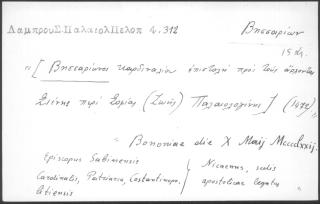 Λαμπρου Σ. Παλαιολ Πελοπ 4.312
Βησσαρίων
"[Βησσαρίωνος καρδιναλίου ἐπιστολὴ πρὸς τοὺς ἄρχοντας
Σιένης περὶ Σοφίας (Ζωῆς) Παλαιολογίνης] (1472)"
"Bononiae die X Maij Mcccclxxij.
Episcopus Sabinensis
Cardinalis, Patriarca, Constantinopo-
litensis
Nicaenus, sedis
apostolicae legatus"